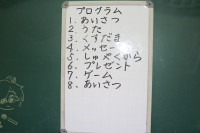 プログラム
1. あいさつ
2. うた
3. くすだま
4. メッセージ
5. しゅくから
6. プレゼント
7. ゲーム
8. あいさつ